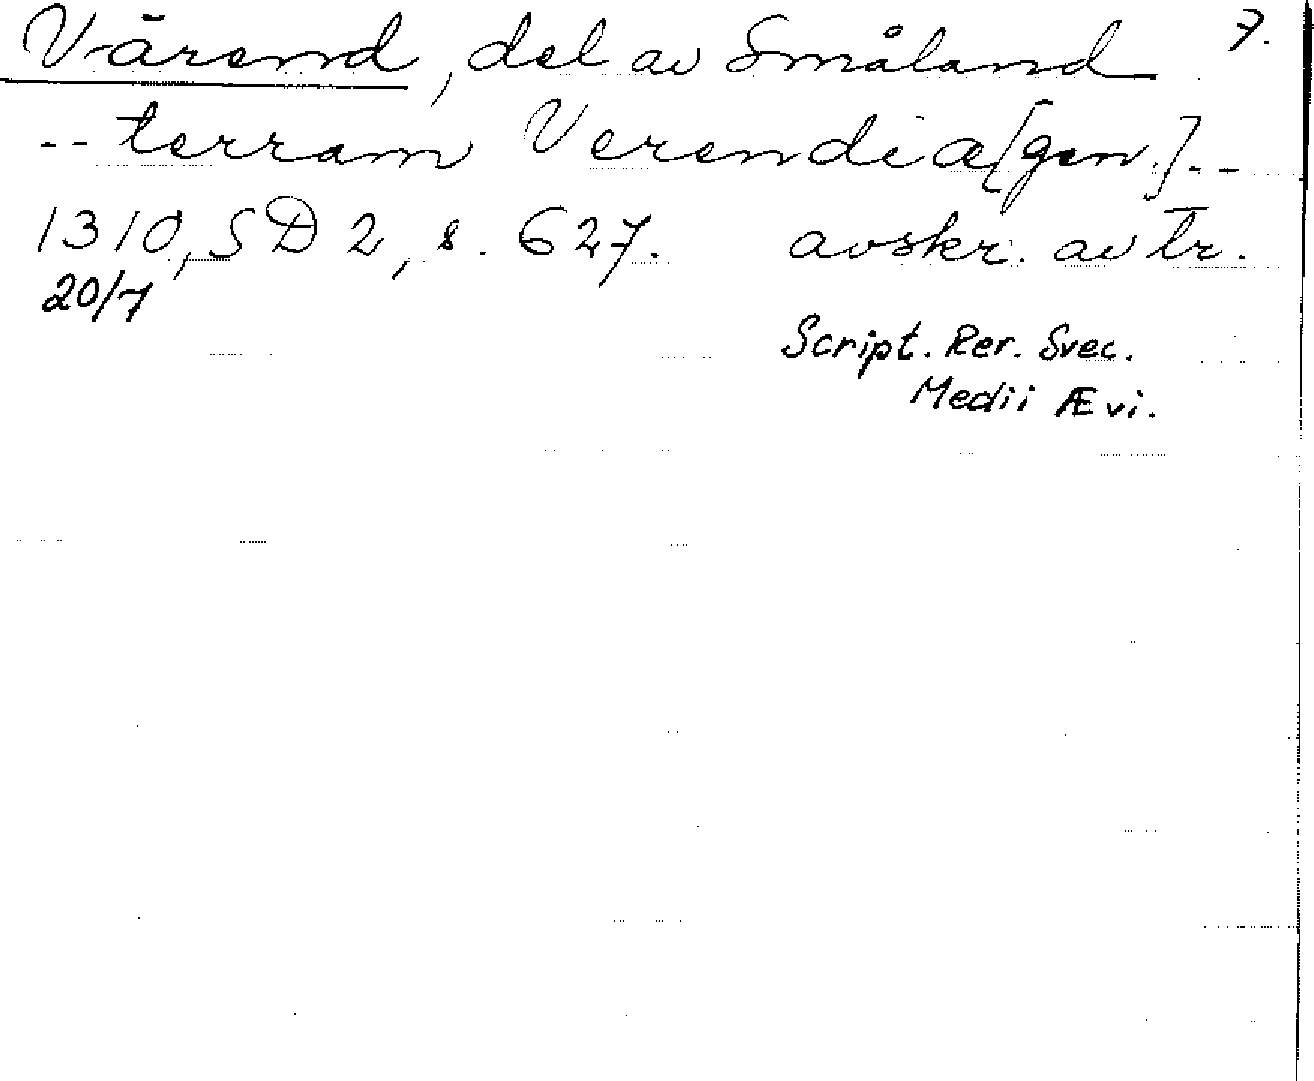 Värend, del av Småland 7.
-- terram Verendiæ [gen.] --
1310, SD 2, s. 627. avskr. av tr.
20/7
Script. Rer. Svec.
Medii Ævi.